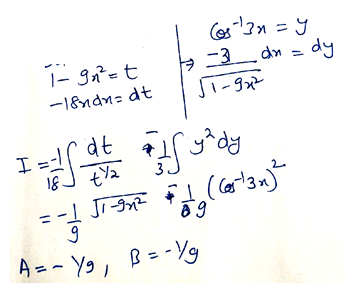 1 - 9x² = t
-18x dx = dt
cos⁻¹3x = y
⇒ -3/√(1-9x²) dx = dy
I = -1/18 ∫ dt/t^(1/2) - 1/3 ∫ y² dy
= -1/9 √(1-9x²) - 1/9 (cos⁻¹3x)²
A = -1/9, B = -1/9